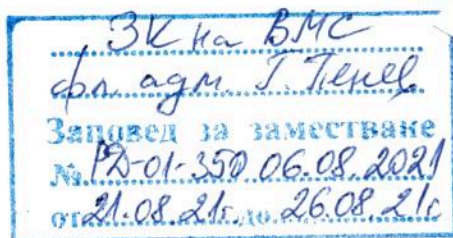 ЗК на ВМС
фл. адм. Г. Пенев
Заповед за заместване
№ РД-01-350 06.08.2021
от 21.08.21г. до 26.08.21г